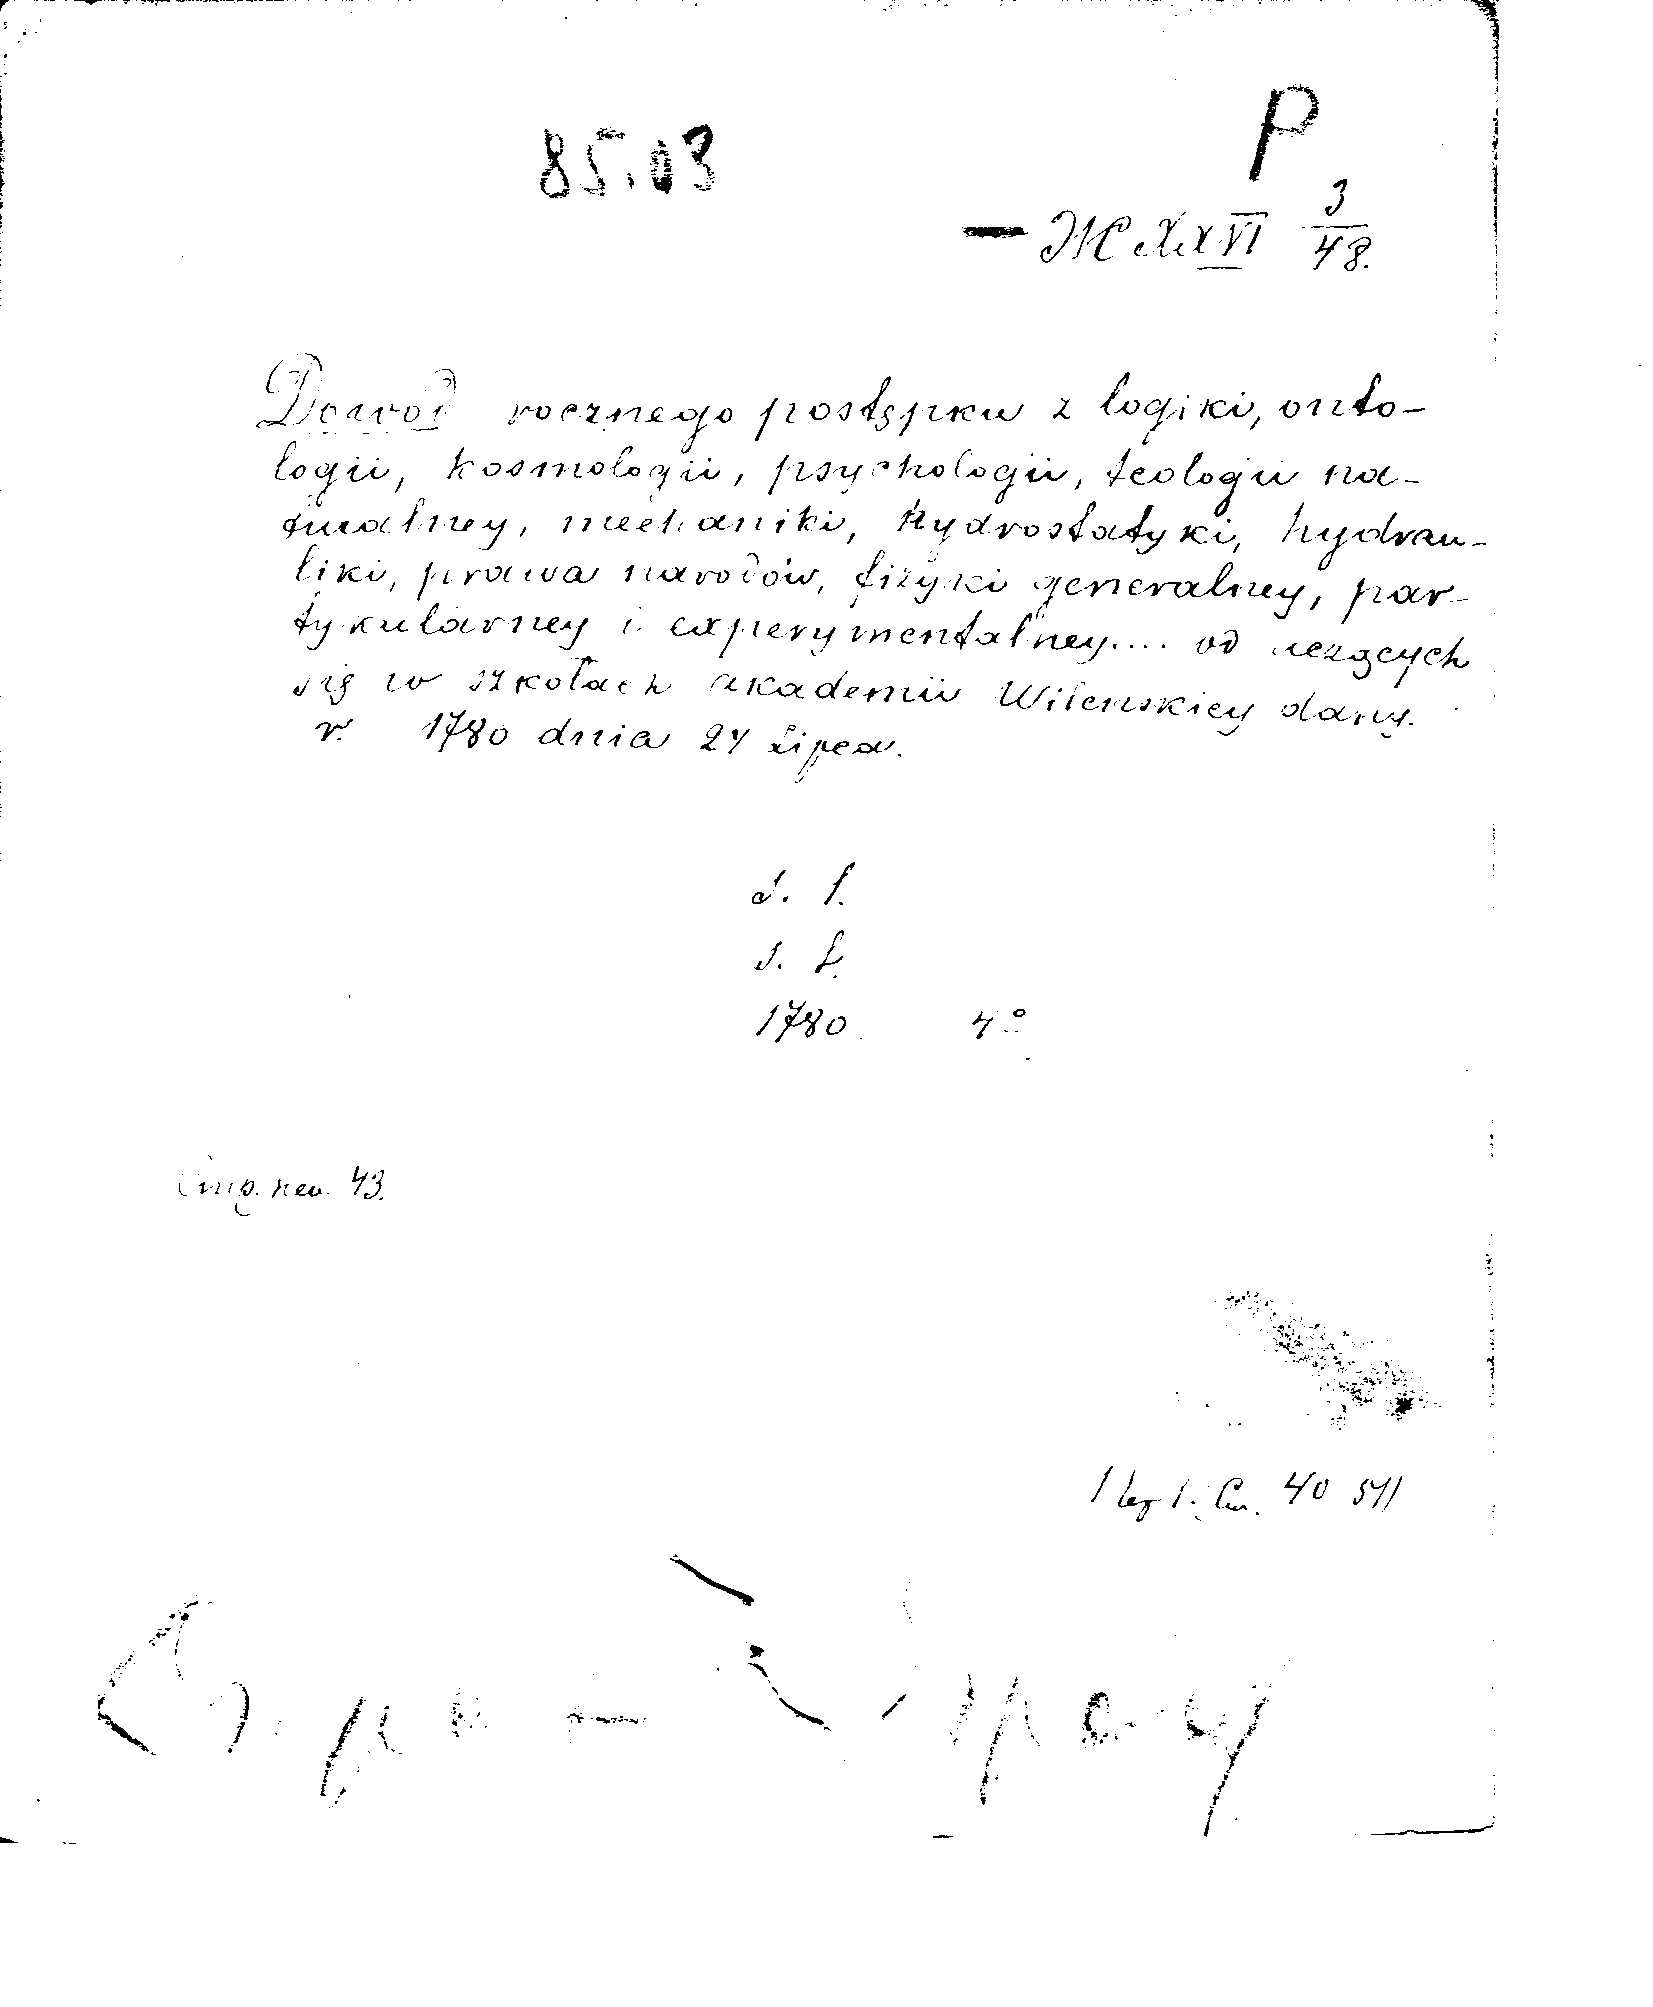 85.03
P
— Ж XXVI 3/48.
Dowod rocznego postępku z logiki, onto-
logii, kosmologii, psychologii, teologii na-
turalney, mechaniki, hydrostatyki, hydrau-
liki, prawa narodów, fizyki generalney, par-
tykularney i experymentalney.... od uczących
się w szkołach akademii Wilenskiey dany.
r. 1780 dnia 24 Lipca.
s. l.
s. t.
1780 4°
стр. нен. 43.
40 541